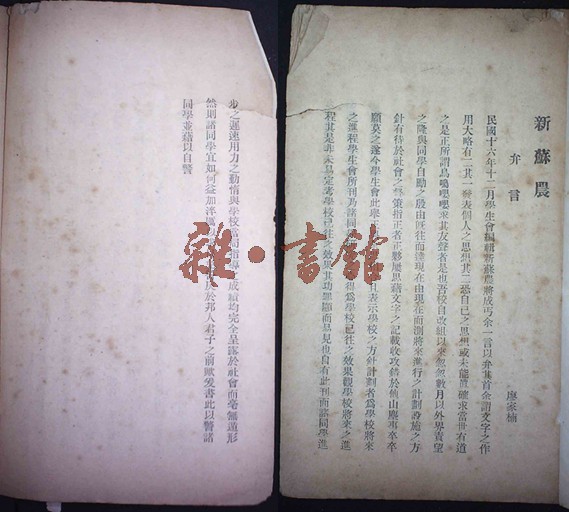 新蘇農
弁言
廖家楠
民國十六年十二月學生會編輯新蘇農將成丐余一言以弁集首余謂文字之作
用大略有二其一發表個人之思想其二恐自己之思想或未能眞確求當世有道
之是正所謂鳥鳴嚶嚶求其友聲者是也吾校自改組以來忽忽數月以外界責望
之隆與同學自勵之殷由旣往而達現在由現在而測將來進行之計劃設施之方
針有待於社會之督策指正者正夥屢思藉文字之記載收攻錯於他山塵事卒卒
願莫之遂今學生會此舉正且表示學校之方針計劃者爲學校將來
之進程學生會所刊乃諸同得爲學校已往之效果觀學校將來之進
程其是非未易定學校已往之效果其功罪顯而易見也自有此刊而諸同學進
步之遲速用力之勤惰與學校當局指導成績均完全呈露於社會而毫無遁形
然則諸同學宜如何益加淬於邦人君子之前歟爰書此以諸
同學並藉以自警
雜·書館